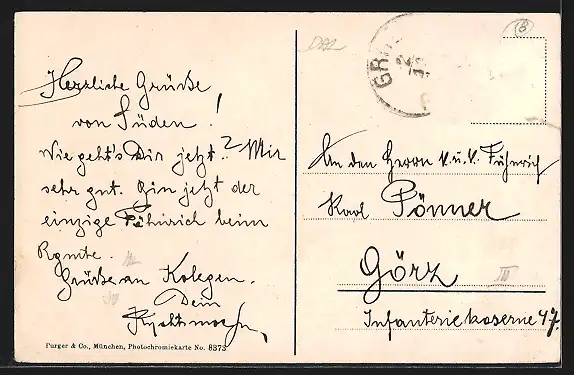 Herzliche Grüße
von Süden!
Wie geht's Dir jetzt? Mir
sehr gut. Bin jetzt der
einzige Fähnrich beim
Rgmte.
Grüße an Kolegen.
Dein
Purger & Co., München, Photochromiekarte No. 8373
GRI
An den Herrn K. u. K. Fähnrich
Karl Pönner
Görz
Infanteriekaserne 47.